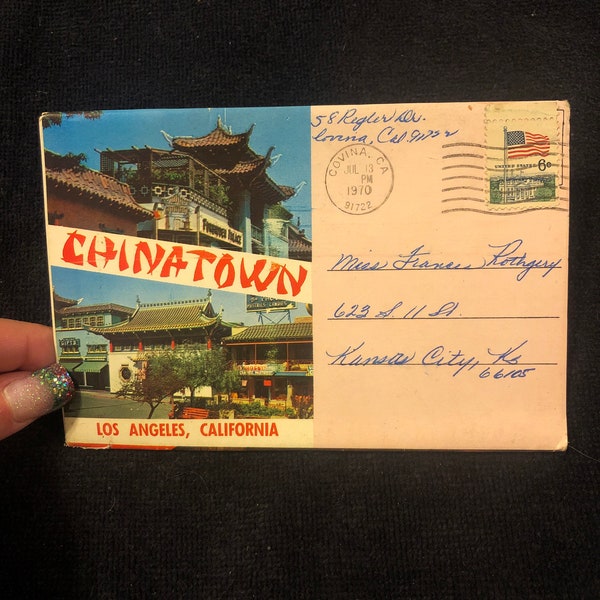 Covina, Cal. 91722
COVINA, CA
JUL 13
PM
1970
91722
UNITED STATES
6c
CHINATOWN
Miss Frances Rothgery
623 S. 11 St.
Kansas City, Ks
66105
LOS ANGELES, CALIFORNIA